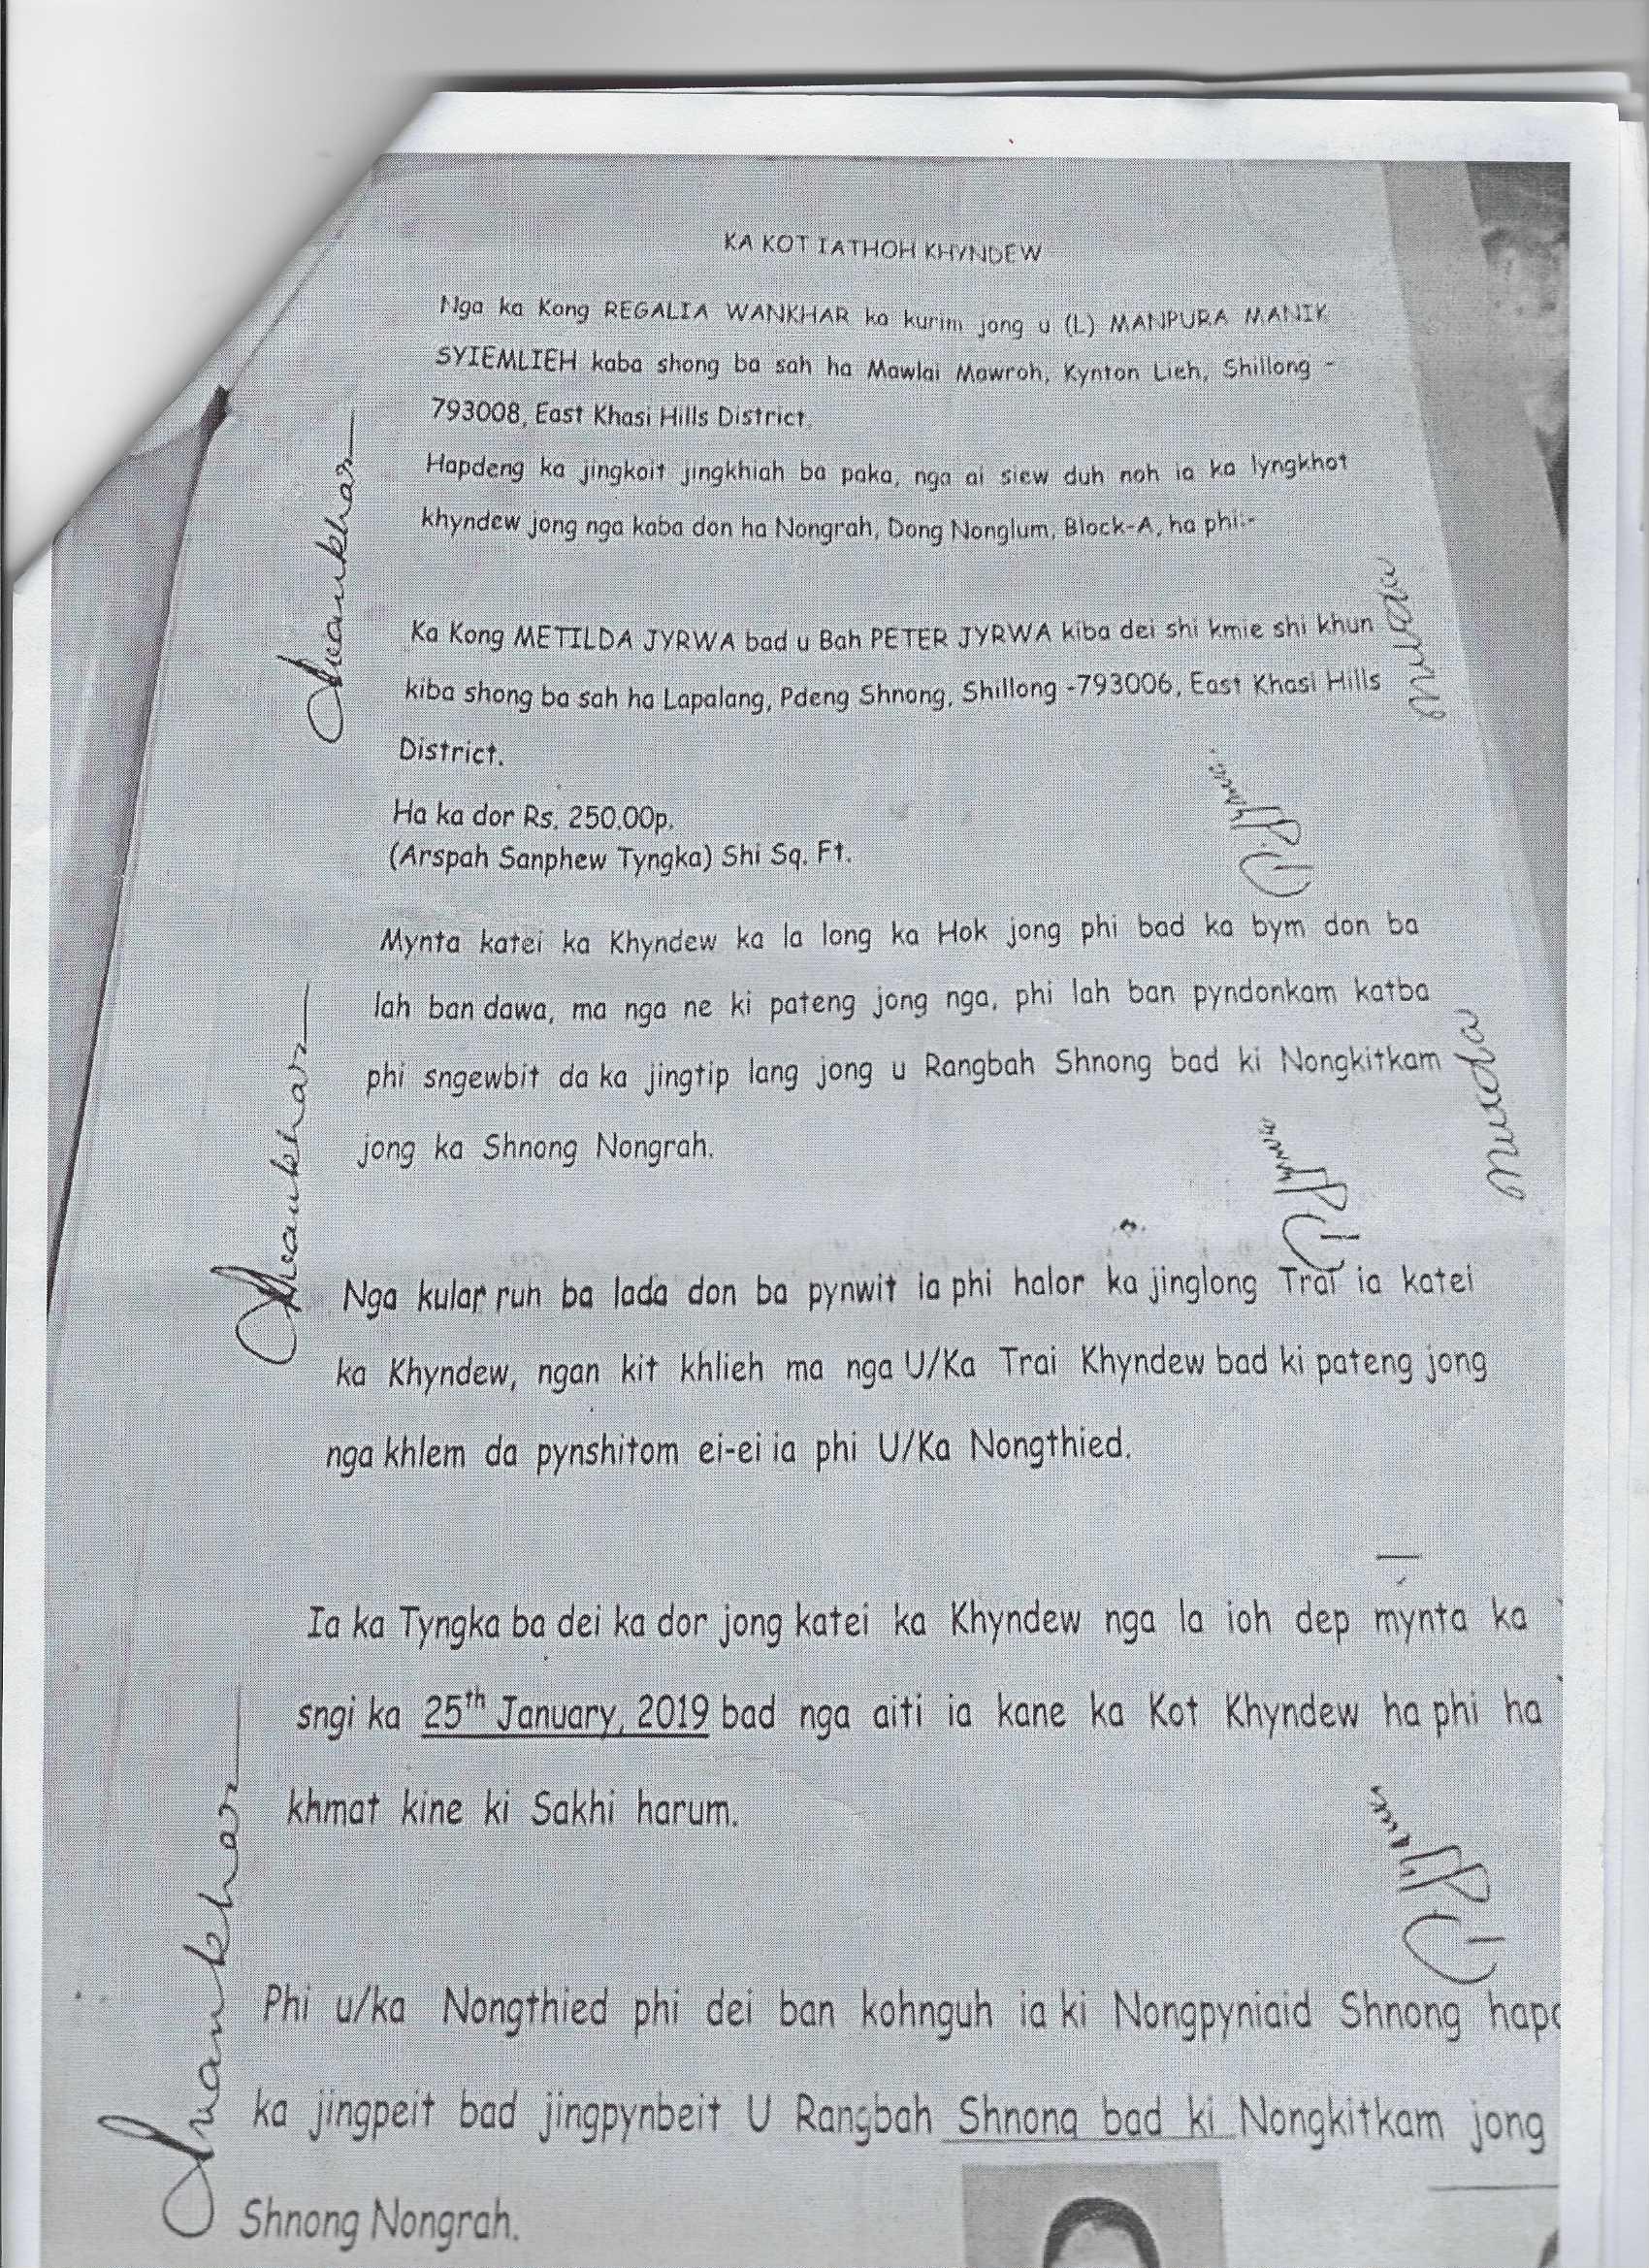 KA KOT IATHOH KHYNDEW
Nga ka Kong REGALIA WANKHAR ka kurim jong u (L) MANPURA MANIK
SYIEMLIEH kaba shong ba sah ha Mawlai Mawroh, Kynton Lieh, Shillong -
793008, East Khasi Hills District.
Hapdeng ka jingkoit jingkhiah ba paka, nga ai siew duh noh ia ka lyngkhot
khyndew jong nga kaba don ha Nongrah, Dong Nonglum, Block-A, ha phi:-
Ka Kong METILDA JYRWA bad u Bah PETER JYRWA kiba dei shi kmie shi khun
kiba shong ba sah ha Lapalang, Pdeng Shnong, Shillong -793006, East Khasi Hills
District.
Ha ka dor Rs. 250.00p.
(Arspah Sanphew Tyngka) Shi Sq. Ft.
Mynta katei ka Khyndew ka la long ka Hok jong phi bad ka bym don ba
lah ban dawa, ma nga ne ki pateng jong nga, phi lah ban pyndonkam katba
phi sngewbit da ka jingtip lang jong u Rangbah Shnong bad ki Nongkitkam
jong ka Shnong Nongrah.
Nga kular ruh ba lada don ba pynwit ia phi halor ka jinglong Trai ia katei
ka Khyndew, ngan kit khlieh ma nga U/Ka Trai Khyndew bad ki pateng jong
nga khlem da pynshitom ei-ei ia phi U/Ka Nongthied.
Ia ka Tyngka ba dei ka dor jong katei ka Khyndew nga la ioh dep mynta ka
sngi ka 25th January, 2019 bad nga aiti ia kane ka Kot Khyndew ha phi ha
khmat kine ki Sakhi harum.
Phi u/ka Nongthied phi dei ban kohnguh ia ki Nongpyniaid Shnong
ka jingpeit bad jingpynbeit U Rangbah Shnong bad ki Nongkitkam jong
Shnong Nongrah.